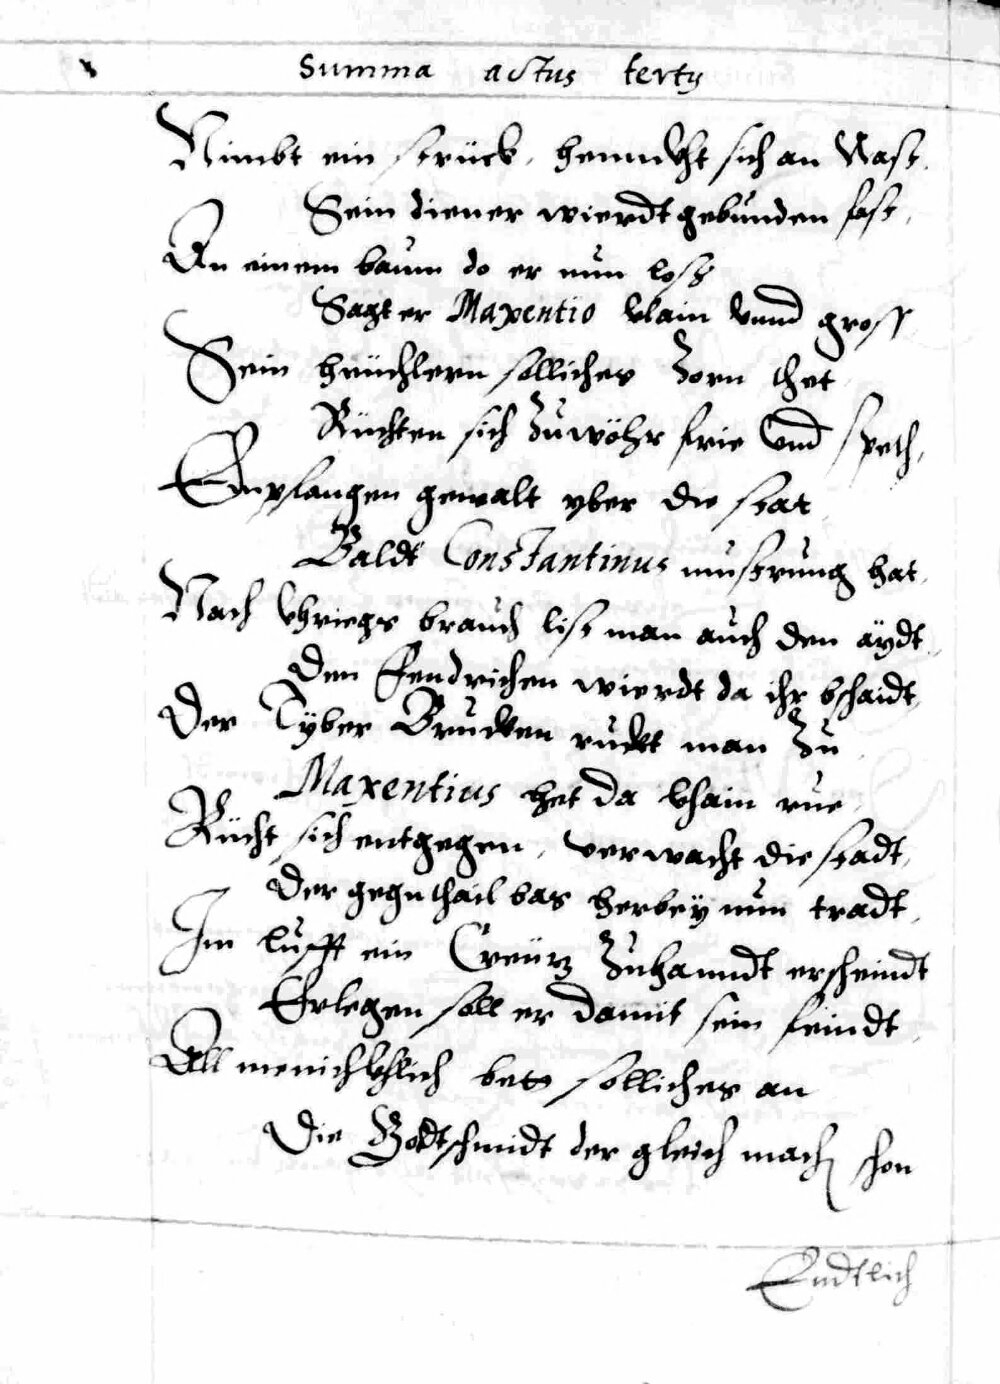 Summa actus tertÿ
Nimbt ein strückh, hennckht sich an Nast.
Sein diener wierdt gebunden fast,
An einem baum do er nun loss
Sagt er Maxentio klain vnnd gross
Sein heüchlern solliches Zorn thet
Rüchten sich Zuwöhr frie vnd speth,
Empfangen gewalt yber die stat
Baldt Constantinus musstrung hat.
Nach Khriegs brauch list man auch den äydt
Den Fendrichen wierdt da ihr bschaidt,
Der Tyber Brucken ruckt man Zu
Maxentius het da khain rue,
Rücht sich entgegen, verwacht die stadt,
Der gegnthail bas herbeÿ nun tradt,
Im lufft ein Creütz Zuhanndt erscheindt
Erlegen soll er damit sein feindt,
All menichkhlich bett solliches an
Die Goldtschmidt der gleich mach schon
Endtlich